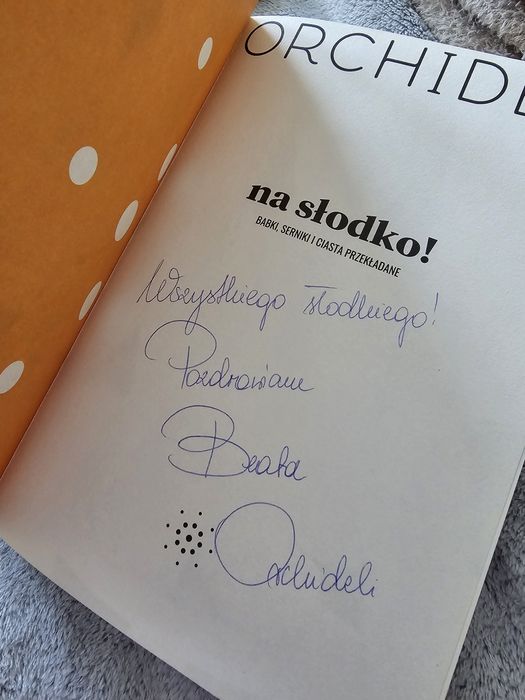 ORCHIDE
na słodko!
BABKI, SERNIKI I CIASTA PRZEKŁADANE
Wszystkiego słodkiego!
Pozdrawiam
Beata
Orchideli